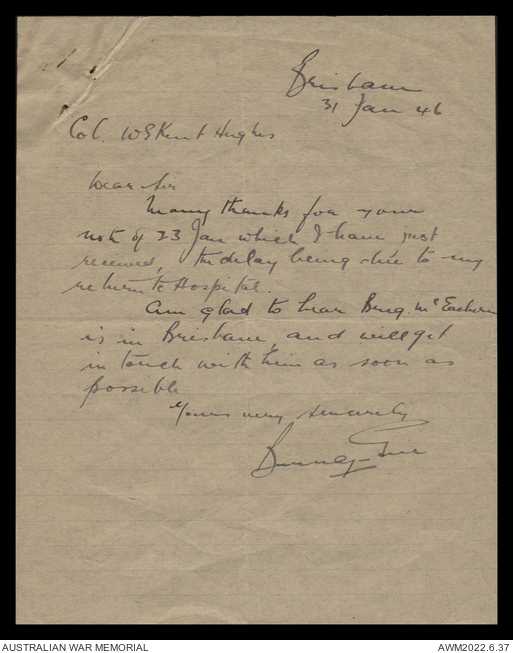 Brisbane
31 Jan 46
Col. WSKent Hughes
Dear Sir
Many thanks for your
note of 23 Jan which I have just
received, the delay being due to my
return to Hospital.
Am glad to hear Brig. McEachern
is in Brisbane, and will get
in touch with him as soon as
possible
Yours very sincerely
AUSTRALIAN WAR MEMORIAL
AWM2022.6.37